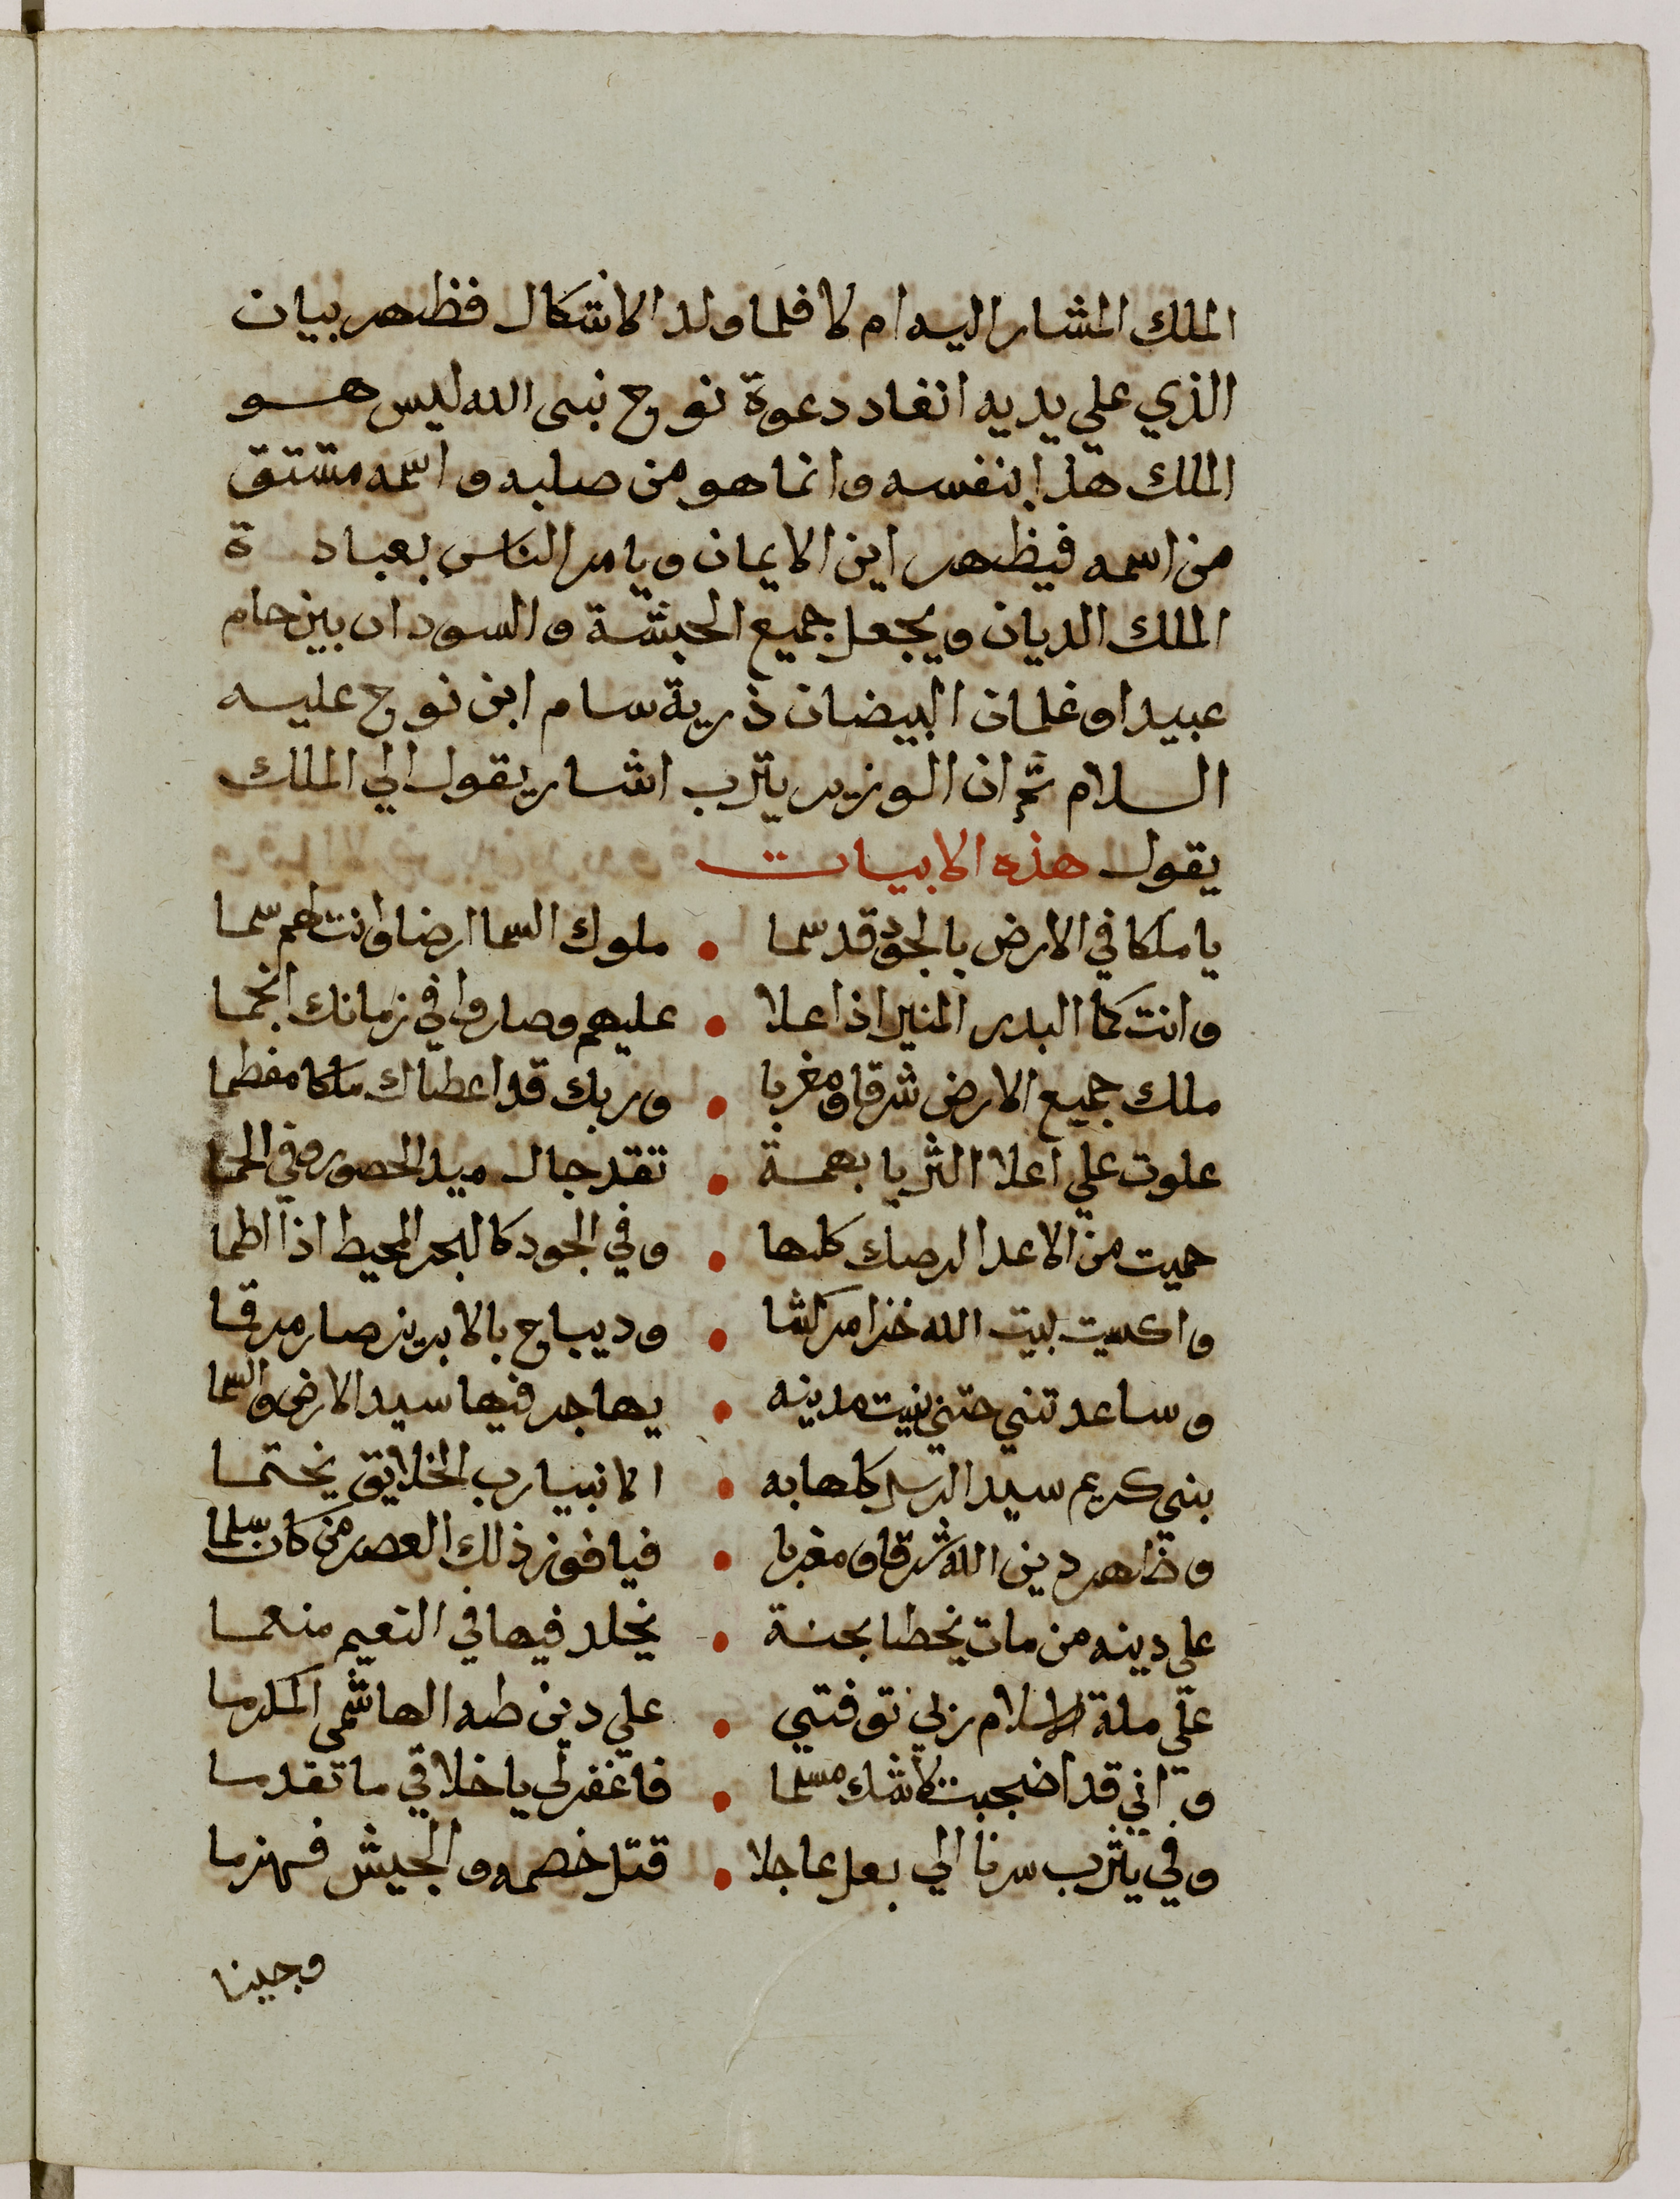 الملك المشار اليه ام لا فلما ولد الاشكال فظهر بيان
الذي علي يديه انفاد دعوة نوح نبى الله ليس هو
الملك هذا بنفسه وانما هو من صلبه واسمه مشتق
من اسمه فيظهر اين الايمان ويامر الناس بعبادة
الملك الديان ويجعل جميع الحبشة والسودان بين حام
عبيدا وغلمان البيضان ذرية سام ابن نوح عليه
السلام ثم ان الوزير يثرب اشار يقول الي الملك
يقول هذه الابيات
يا ملكا في الارض بالجود قد سما • ملوك السما ارضا وانت لهم سما
وانت كما البدر المنير اذا علا • عليهم وصاروا في زمانك انجما
ملك جميع الارض شرقا ومغربا • وربك قد اعطاك ملكا مفطما
علوت علي اعلا الثريا بهمة • تقد جال ميد الحصور وفي الحما
حميت من الاعدا لرصك كلها • وفي الجود كالبحر المحيط اذا اطما
واكسيت لبيت الله خزا مركشا • وديباج بالابريز صار مرقما
وساعدتني حتي بنيت مدينه • يهاجر فيها سيد الارض والسما
بنى كريم سيد الرسل كلها به • الانبيا رب الخلايق يختما
وظاهر دين الله شرقا ومغربا • فيا فوز ذلك العصر من كان مسلما
علي دينه من مات يخطا بجنة • يخلد فيها في النعيم منعما
علي ملة الاسلام ربي توفتني • علي دين طه الهاشمى المكرما
واني قد اضجبت لا شك مسلما • فاغفر لي يا خلاقي ما تقدما
وفي يثرب سرنا الي بعل عاجلا • قتل خصمه والجيش فهزما
وجينا